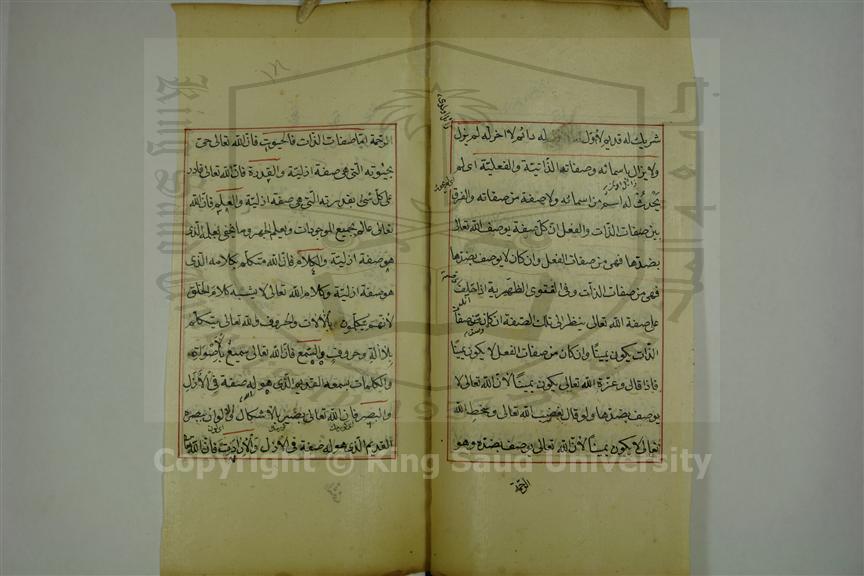 شريك له قديم لاول له دائم لا اخر له لم يزل
ولا يزال باسمائه وصفاته الذاتية والفعلية اى لم
يحدث له اسم من اسمائه ولا صفة من صفاته والفرق
بين صفات الذات والفعل ان كل صفة يوصف الله تعالى
بضدها فهى من صفات الفعل وان كان لا يوصف بضدها
فهى من صفات الذات وفى الفتوى الظهيرية اذا حلف
على صفة الله تعالى ينظر الى تلك الصفة ان كان من صفات
الذات يكون يمينا وان كان من صفات الفعل لا يكون يمينا
فاذا قال وعزة الله تعالى يكون يمينا لان الله تعالى لا
يوصف بضدها ولو قال بغضب الله تعالى وسخط الله
تعالى لا يكون يمينا لان الله تعالى يوصف بضده وهو
الرحمة
الرحمة اما صفات الذات فالحيوة فان الله تعالى حى
بحيوته التى هى صفة ازلية والقدرة فان الله تعالى قادر
على كل شئ بقدرته التى هى صفة ازلية والعلم فان الله
تعالى عالم بجميع الموجودات ويعلم الجهر وما يخفى بعلمه الذى
هو صفة ازلية والكلام فان الله متكلم بكلامه الذى
هو صفة ازلية وكلام الله تعالى لا يشبه كلام الخلق
لانهم يتكلمون بالآلات والحروف والله تعالى يتكلم
بلا آلة وحروف والسمع فان الله تعالى سميع بالاصوات
والكلمات بسمعه القديم الذى هو له صفة فى الازل
والبصير فان الله تعالى بصير بالاشكال والالوان ببصره
القديم الذى هو له صفة فى الازل والارادة فان الله
Copyright © King Saud University